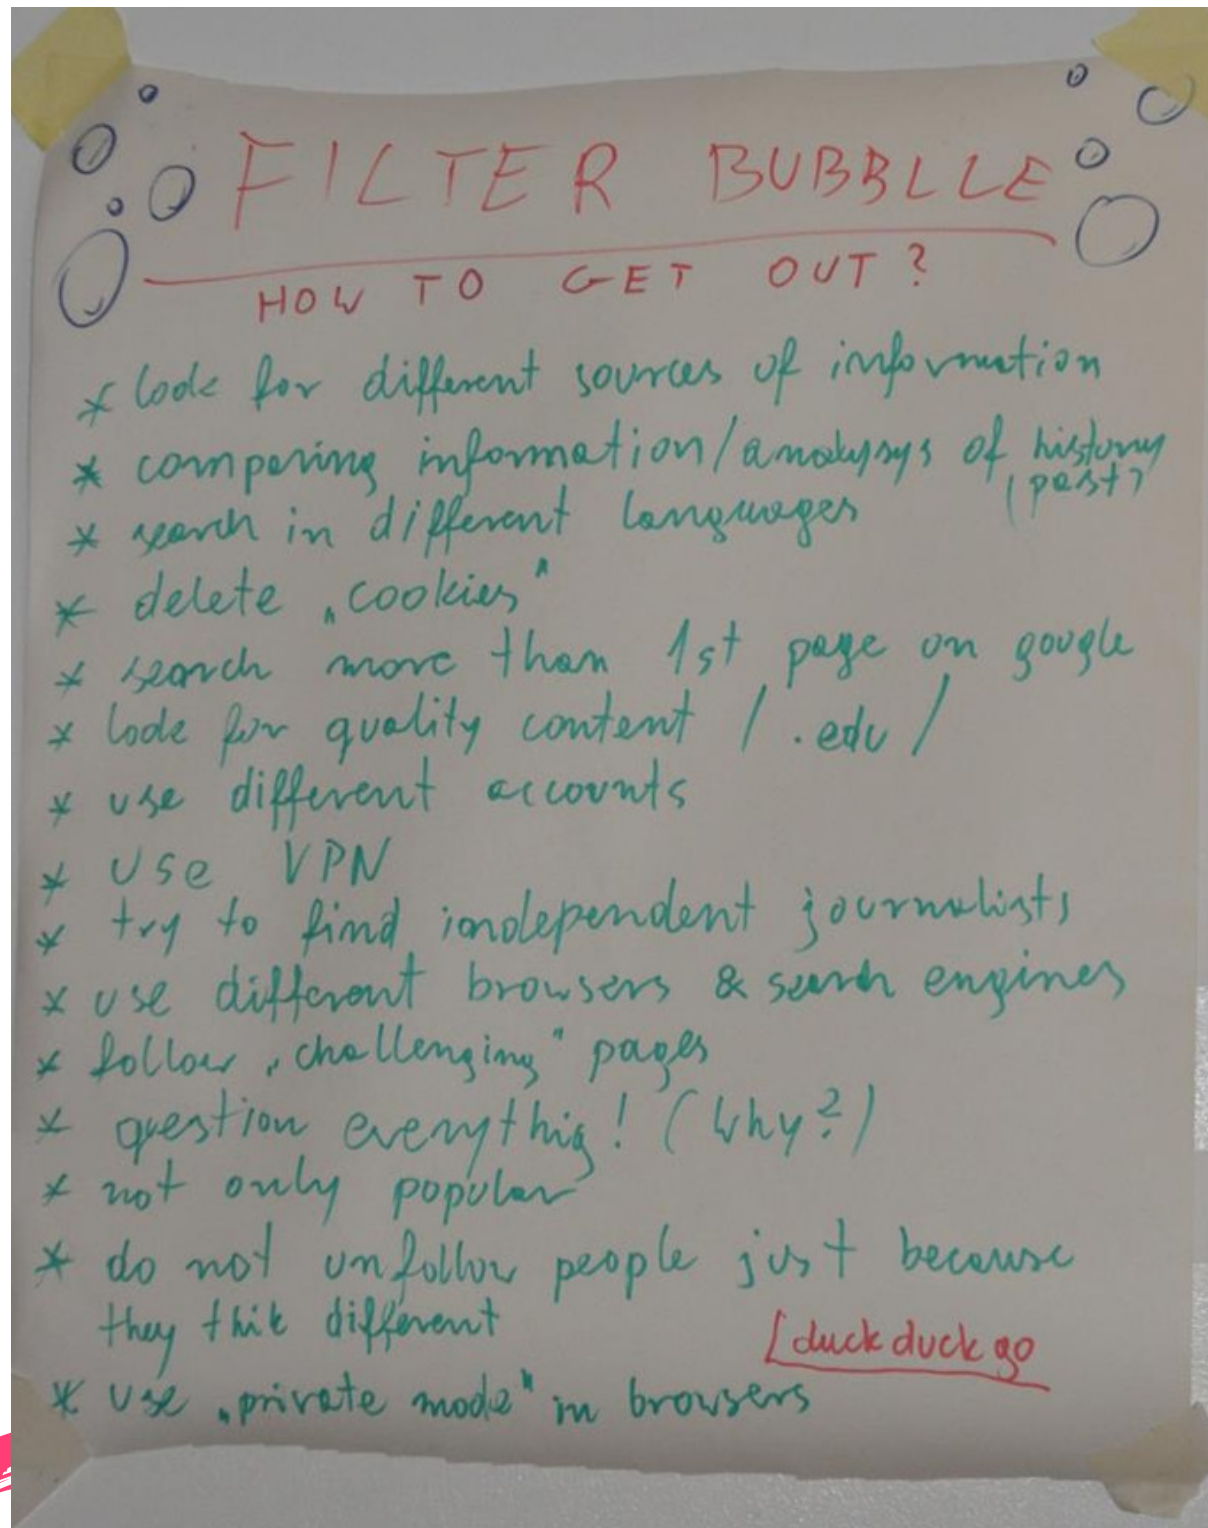 FILTER BUBBLLE
HOW TO GET OUT?
* look for different sources of information
* comparing information/analysys of history
(past)
* search in different languages
* delete „cookies"
* search more than 1st page on google
* look for quality content / .edu /
* use different accounts
* use VPN
* try to find independent journalists
* use different browsers & search engines
* follow „challenging" pages
* question everythig! (Why?)
* not only popular
* do not unfollow people just because
they thik different
[duckduckgo
* use „private mode" in browsers